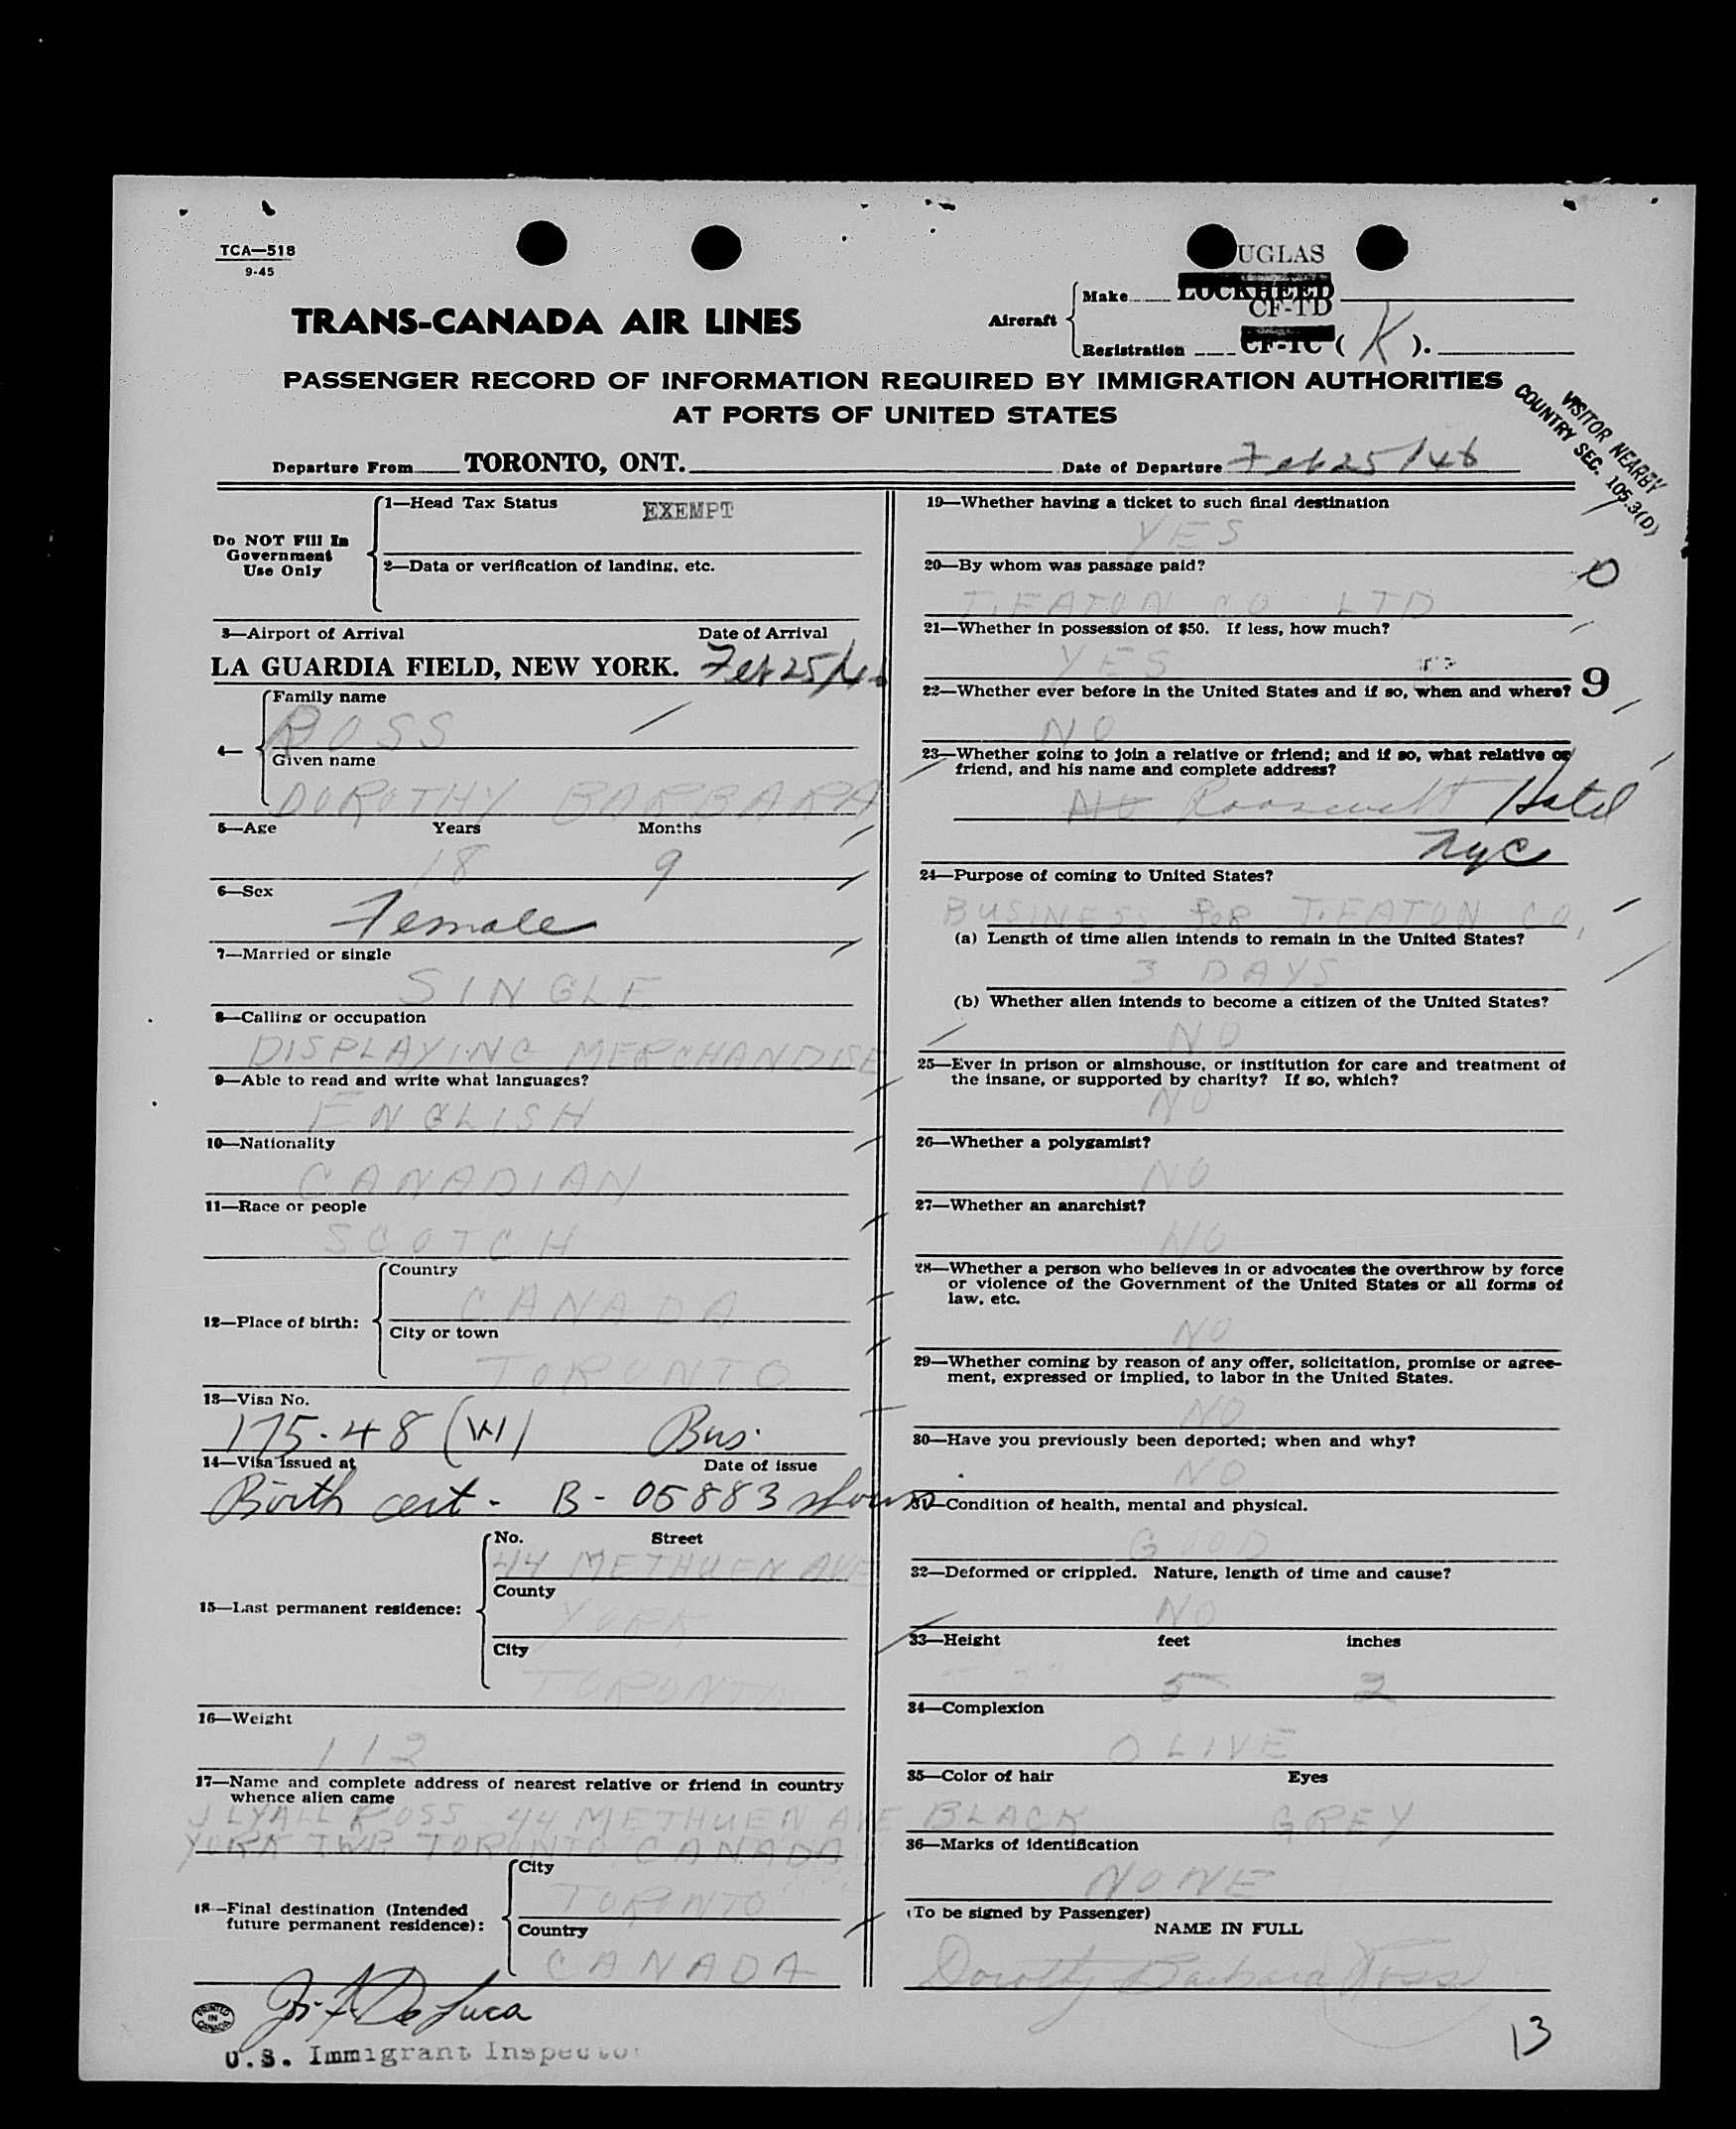 TCA—518
9-45
UGLAS
TRANS-CANADA AIR LINES
Aircraft
Make LOCKHEED
CF-TD
Registration CF-TC ( K ).
PASSENGER RECORD OF INFORMATION REQUIRED BY IMMIGRATION AUTHORITIES
AT PORTS OF UNITED STATES
VISITOR NEARBY
COUNTRY SEC. 105.3(D)
Departure From TORONTO, ONT. Date of Departure Feb 25/46
Do NOT Fill In
Government
Use Only
1—Head Tax Status EXEMPT
2—Data or verification of landing, etc.
3—Airport of Arrival Date of Arrival
LA GUARDIA FIELD, NEW YORK. Feb 25/4
4—
Family name
ROSS
Given name
DOROTHY BARBARA
5—Age Years Months
18 9
6—Sex
Female
7—Married or single
SINGLE
8—Calling or occupation
DISPLAYING MERCHANDISE
9—Able to read and write what languages?
ENGLISH
10—Nationality
CANADIAN
11—Race or people
SCOTCH
12—Place of birth:
Country
CANADA
City or town
TORONTO
13—Visa No.
175.48 (W) Bus.
14—Visa issued at Date of issue
Birth cert - B - 05883 shown
15—Last permanent residence:
No. Street
44 METHUEN AVE
County
YORK
City
TORONTO
16—Weight
112
17—Name and complete address of nearest relative or friend in country
whence alien came
J LYALL ROSS 44 METHUEN AVE
YORK TWP. TORONTO CANADA
18—Final destination (Intended
future permanent residence):
City
TORONTO
Country
CANADA
PRINTED
IN
CANADA
De Luca
U.S. Immigrant Inspector
19—Whether having a ticket to such final destination
YES
20—By whom was passage paid?
T. EATON CO LTD
21—Whether in possession of $50. If less, how much?
YES
9
22—Whether ever before in the United States and if so, when and where?
NO
23—Whether going to join a relative or friend; and if so, what relative or
friend, and his name and complete address?
No Roosevelt Hotel
NYC
24—Purpose of coming to United States?
BUSINESS FOR T. EATON CO,
(a) Length of time alien intends to remain in the United States?
3 DAYS
(b) Whether alien intends to become a citizen of the United States?
NO
25—Ever in prison or almshouse, or institution for care and treatment of
the insane, or supported by charity? If so, which?
NO
26—Whether a polygamist?
NO
27—Whether an anarchist?
NO
28—Whether a person who believes in or advocates the overthrow by force
or violence of the Government of the United States or all forms of
law, etc.
NO
29—Whether coming by reason of any offer, solicitation, promise or agree-
ment, expressed or implied, to labor in the United States.
NO
30—Have you previously been deported; when and why?
NO
31—Condition of health, mental and physical.
GOOD
32—Deformed or crippled. Nature, length of time and cause?
NO
33—Height feet inches
5 2
34—Complexion
OLIVE
35—Color of hair Eyes
BLACK GREY
36—Marks of identification
NONE
(To be signed by Passenger)
NAME IN FULL
Dorothy Barbara Ross
13